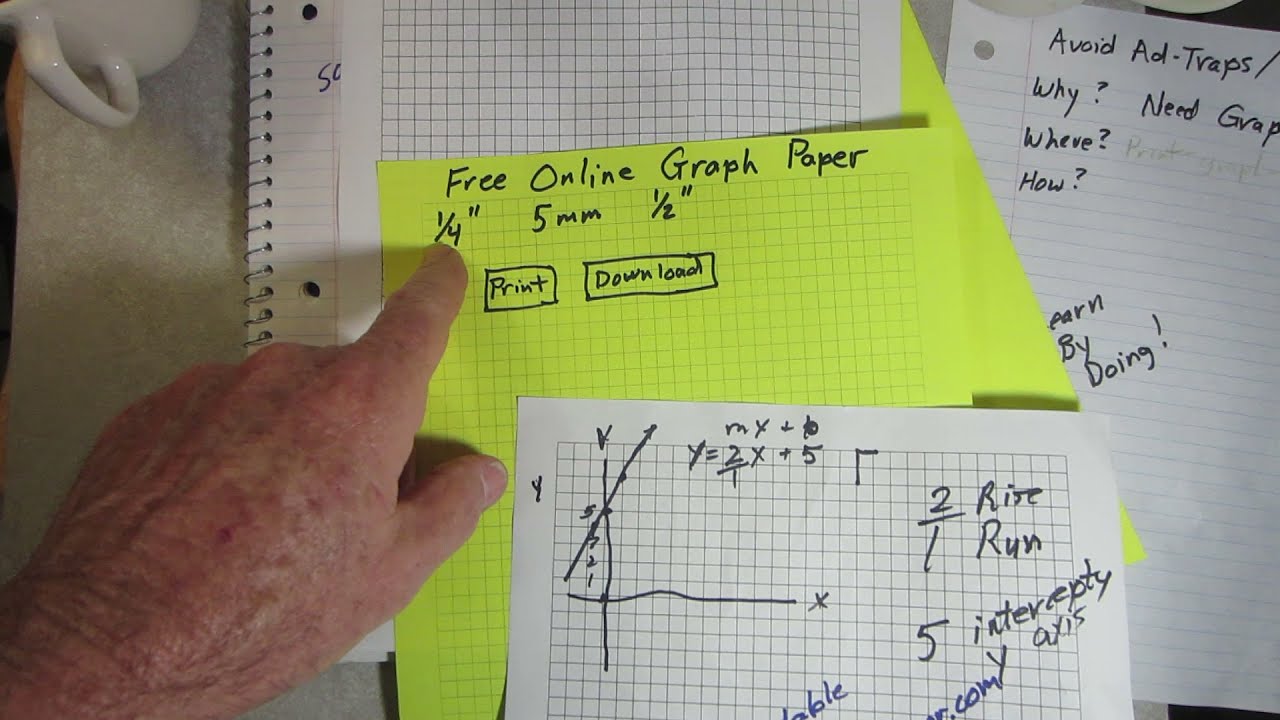 Free Online Graph Paper
1/4" 5mm 1/2"
Print Download
Avoid Ad-Traps/
Why? Need Grap
Where? Print graph
How?
earn
By
Doing!
mx + b
y = 2/1 x + 5
Y
5
3
2
1
X
2 Rise
1 Run
5 intercept y
axis
lable
.com